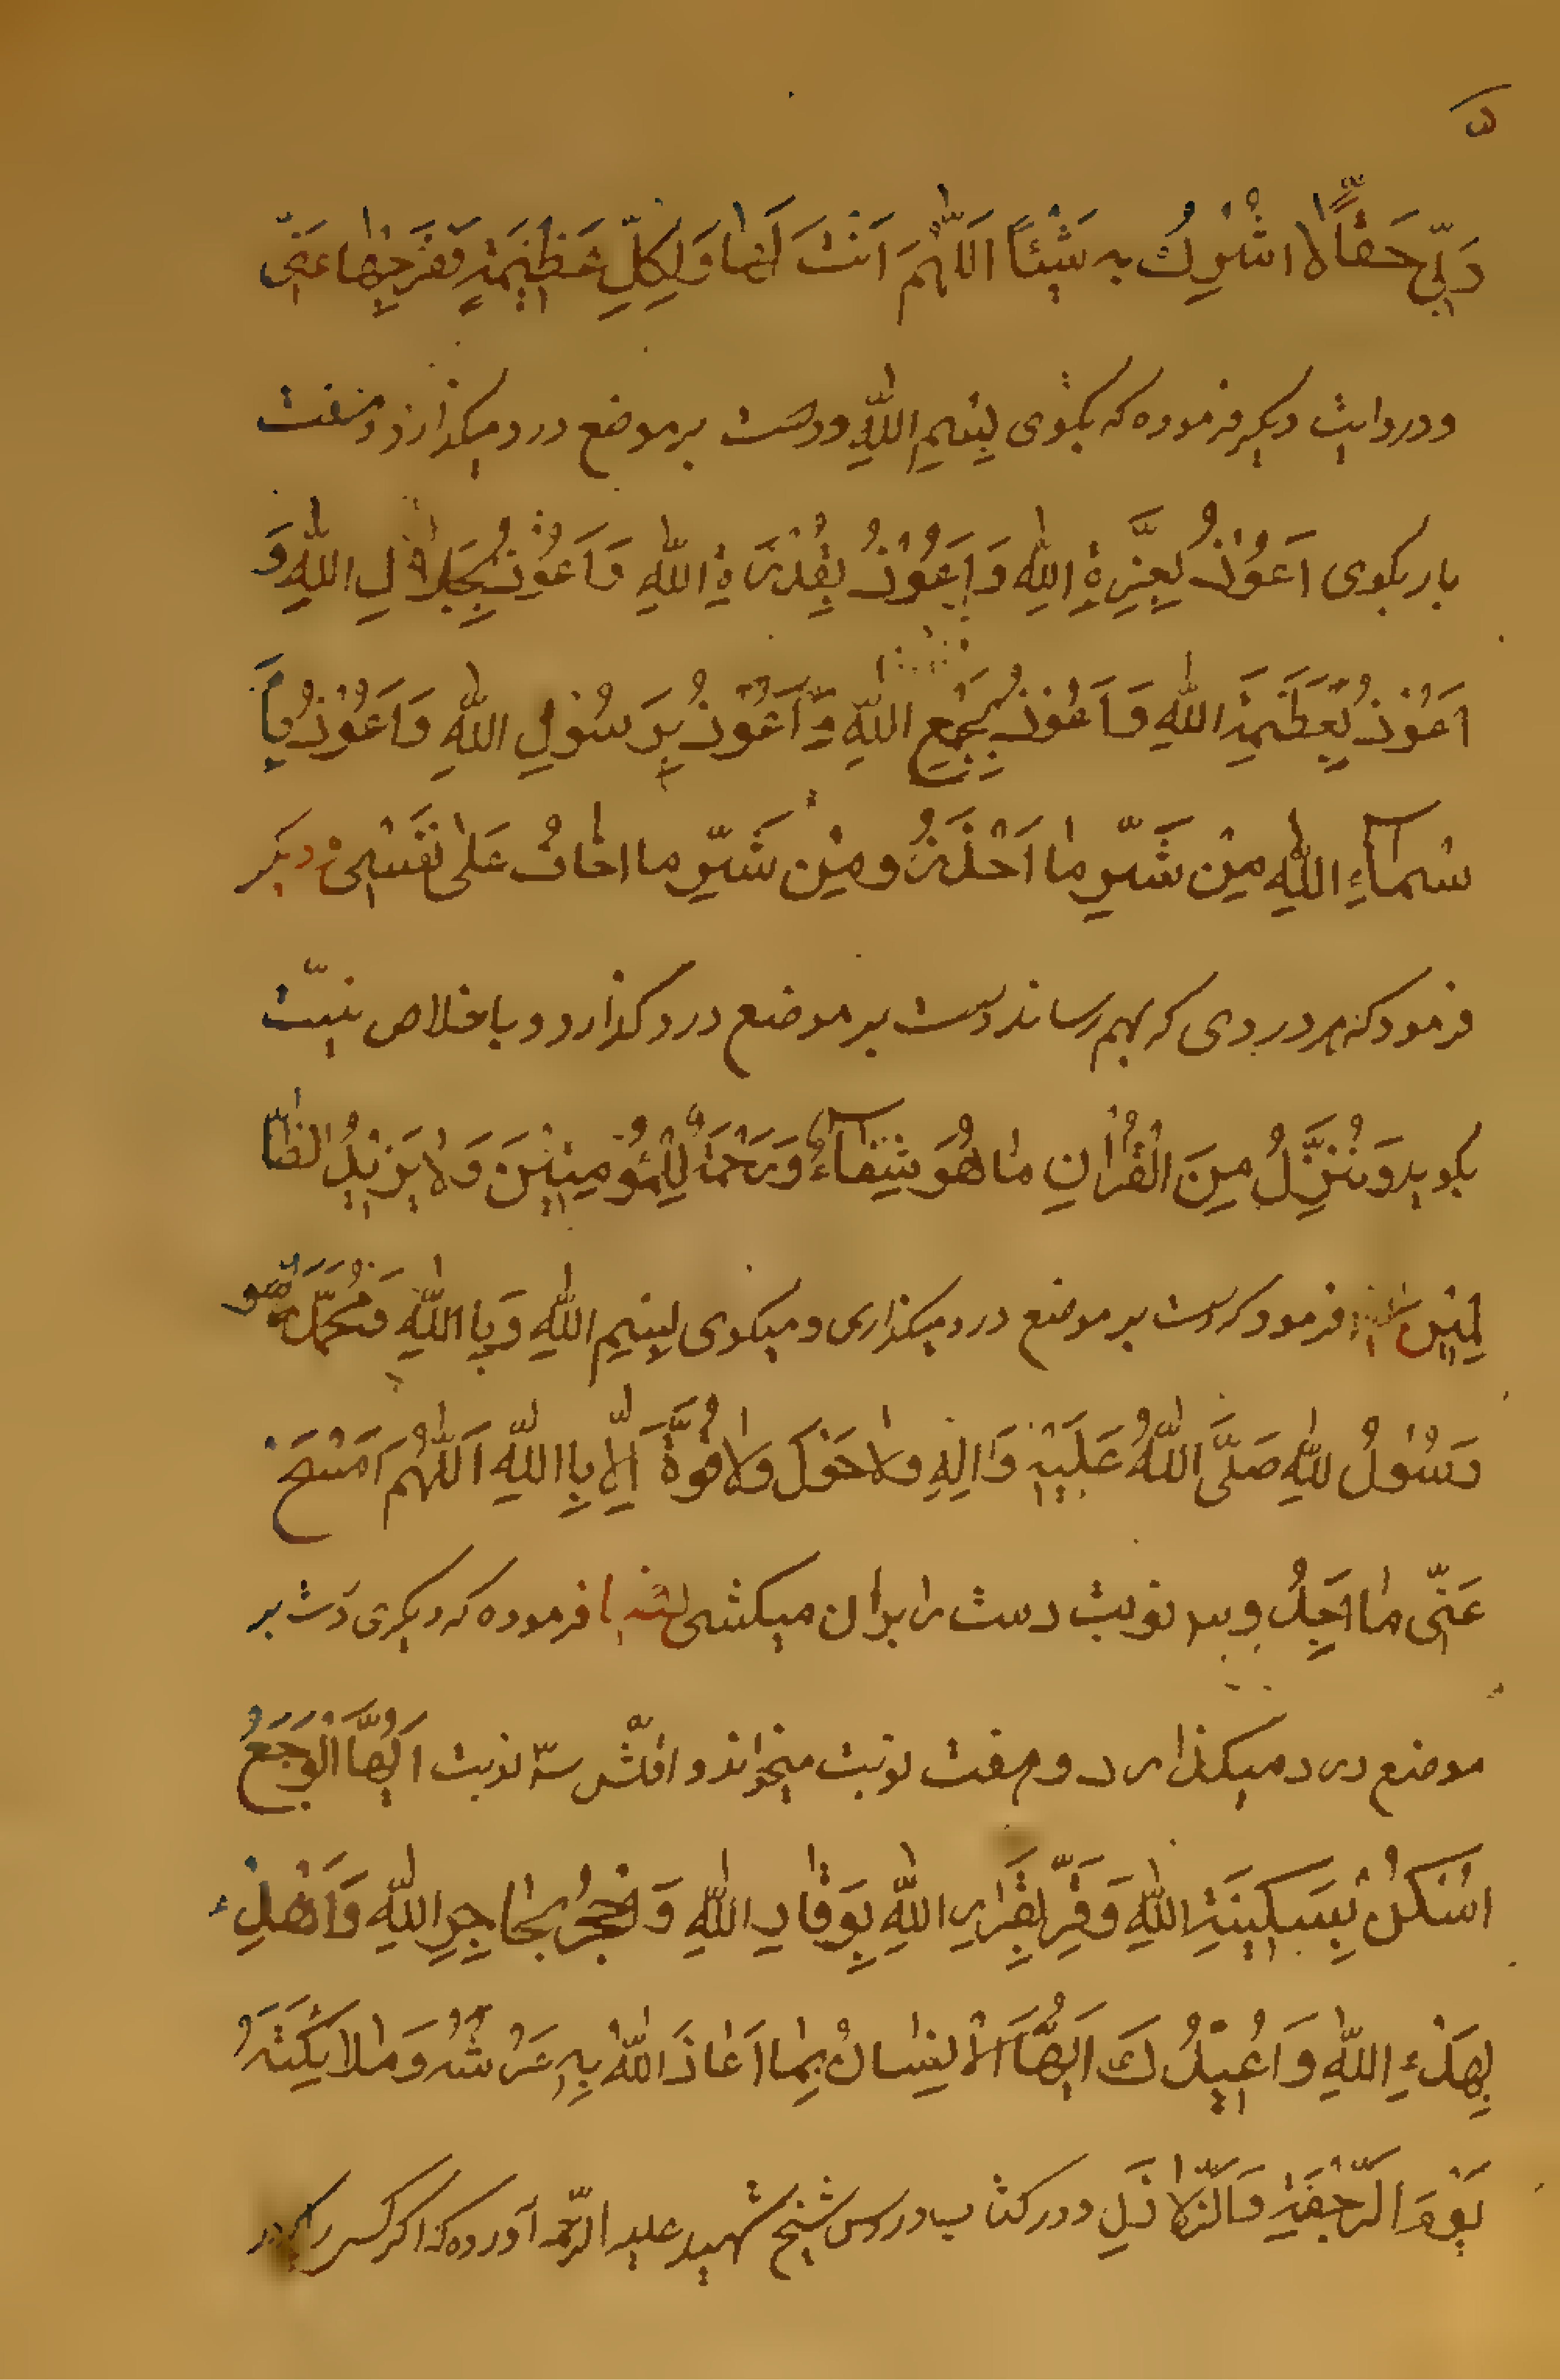 ۵
رَبّی حَقّاً لا اشْرِكُ بِه شَیْئاً اَللّٰهُمَّ اَنْتَ لَها وَلِكُلِّ عَظیْمَةٍ فَفَرِّجْها عَنّی
ودر روایت دیکر فرموده که بکوی بِسْمِ اللّٰهِ ودست بر موضع درد میکذارذ وهفت
بار بکوی اَعُوْذُ بِعِزَّةِ اللّٰهِ وَ اَعُوْذُ بِقُدْرَةِ اللّٰهِ وَ اَعُوْذُ بِجَلالِ اللّٰهِ وَ
اَعُوْذُ بِعَظَمَةِ اللّٰهِ وَ اَعُوْذُ بِجَمْعِ اللّٰهِ وَ اَعُوْذُ بِرَسُوْلِ اللّٰهِ وَ اَعُوْذُ بِاَ
سْمآءِ اللّٰهِ مِنْ شَرِّ ما اَحْذَرُ وَ مِنْ شَرِّ ما اخافُ عَلٰی نَفْسیْ دیکر
فرمود که هر دردی که بهم رساند دست بر موضع درد کذارد و باخلاص نیّت
بکوید وَنُنَزِّلُ مِنَ الْقُرْانِ ما هُوَ شِفآءٌ وَرَحْمَةٌ لِلْمُؤْمِنِیْنَ وَلا یَزِیْدُ الظّا
لِمِیْنَ فرمود که دست بر موضع درد میکذاری و میکوی بِسْمِ اللّٰهِ وَ بِا اللّٰهِ وَ مُحَمَّدٌ
رَسُوْلُ للّٰهِ صَلَّی اللّٰهُ عَلَیْهِ وَ الِهِ وَلا حَوْلَ وَلا قُوَّةَ اِلّا بِا اللّٰهِ اَللّٰهُمَ امْسَحْ
عَنّی ما اَجِدُ وسه نوبت دست را بران میکشی ایضا فرموده که دیکری دست بر
موضع درد میکذارد و هفت نوبت میخواند و اقلّش سه نوبت اَیُّهَا الْوَجَعُ
اسْكُنْ بِسَكِیْنَةِ اللّٰهِ وَقِرّ بِقَرارِ اللّٰهِ بِوَقارِ اللّٰهِ وَ بِحاجِرِ اللّٰهِ وَاهْدِءْ
بِهَدْءِ اللّٰهِ وَ اُعِیْذُكَ اَیُّهَا الْاِنْسانُ بِما اَعاذَ اللّٰهُ بِهِ عَرْشَهُ وَ مَلائِكَتَهُ
یَوْمَ الرَّجْفَةِ وَالزَّلازِلِ ودر کتاب دروس شیخ شهید علیه الرحمه آورده که اکر کسی را